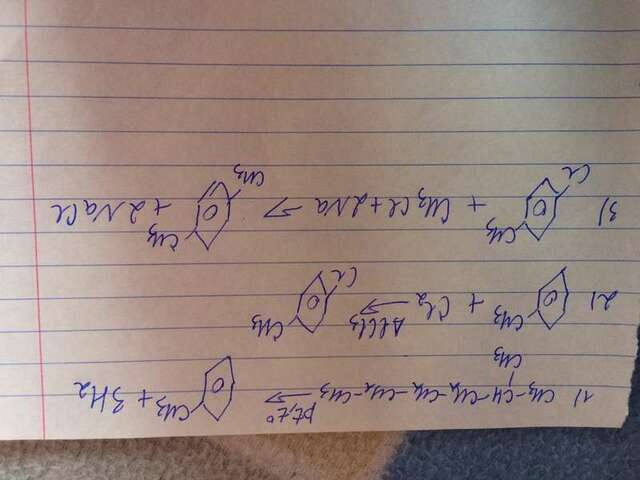 1) CH₃-CH-CH₂-CH₂-CH₂-CH₃ pt,t° → CH₃ + 3H₂
CH₃
2) CH₃ + Cl₂ AlCl₃ → CH₃
Cl
3) CH₃ + CH₃Cl + 2Na → CH₃ + 2NaCl
Cl CH₃